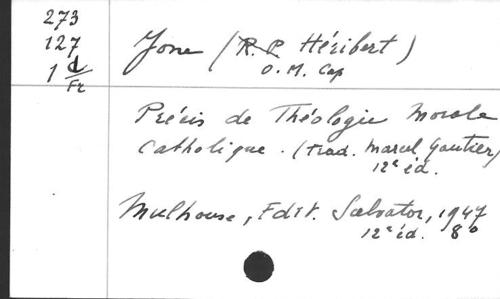 273
127
1 d/Fr
Jone (R. P. Héribert)
O. M. Cap
Précis de Théologie Morale
Catholique. (trad. Marcel Gautier)
12e éd.
Mulhouse, Edit. Salvator, 1947
12e éd. 8°